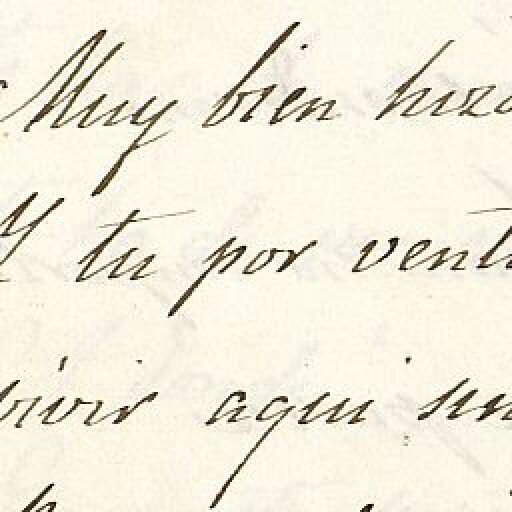 Muy bien hizo
Y tu por ventu
bivir aqui sin